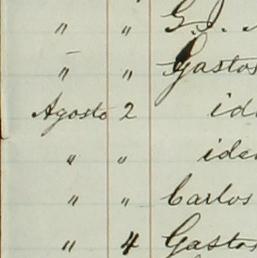 " " G. J.
" " Gastos
Agosto 2 id
" " ide
" " Carlos
" 4 Gastos